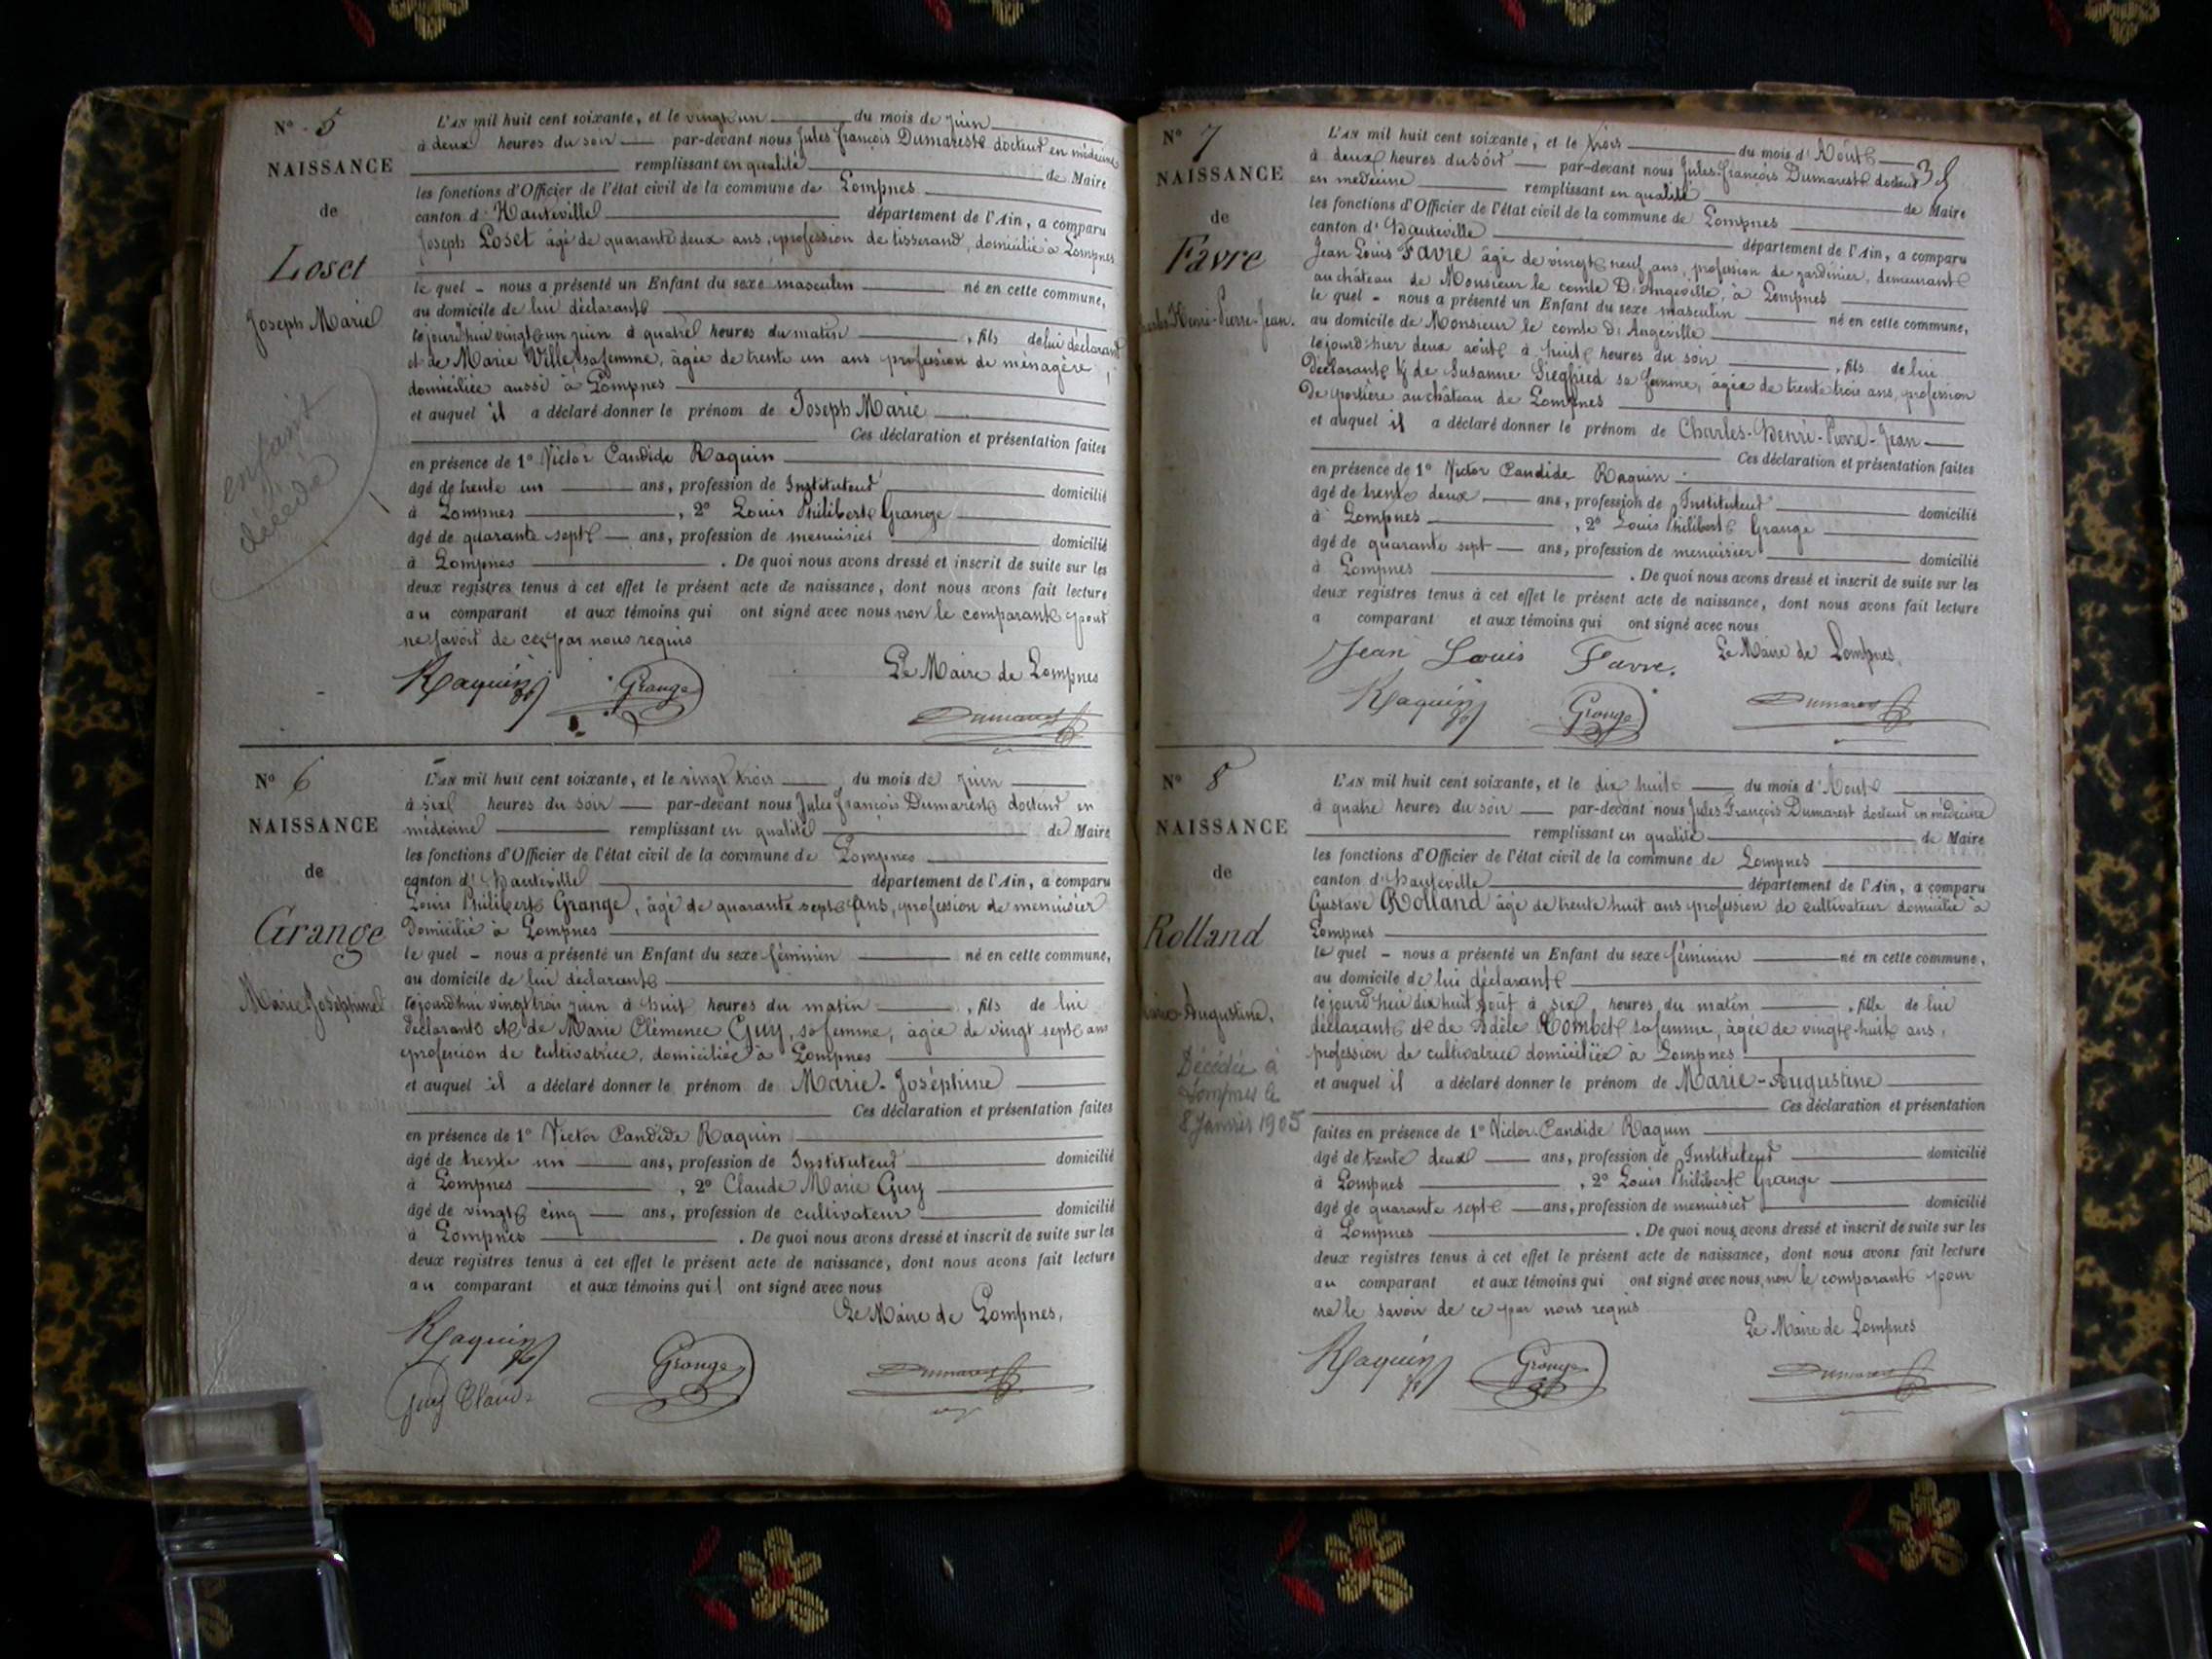 N° 5
NAISSANCE
de
Loset
Joseph Marie
enfant
décédé
L'AN mil huit cent soixante, et le vingt un du mois de juin
à deux heures du soir par-devant nous Jules françois Dumarest docteur en médecine
remplissant en qualité de Maire
les fonctions d'Officier de l'état civil de la commune de Lompnes
canton d' Hauteville département de l'Ain, a comparu
Joseph Loset âgé de quarante deux ans, profession de tisserand, domicilié à Lompnes
le quel - nous a présenté un Enfant du sexe masculin né en cette commune,
au domicile de lui déclarant
le jourd'hui vingt un juin à quatre heures du matin , fils de lui déclarant
et de Marie Villet sa femme, âgée de trente un ans profession de ménagère,
domiciliée aussi à Lompnes
et auquel il a déclaré donner le prénom de Joseph Marie
Ces déclaration et présentation faites
en présence de 1° Victor Candide Raquin
âgé de trente un ans, profession de Instituteur domicilié
à Lompnes , 2° Louis Philibert Grange
âgé de quarante sept ans, profession de menuisier domicilié
à Lompnes . De quoi nous avons dressé et inscrit de suite sur les
deux registres tenus à cet effet le présent acte de naissance, dont nous avons fait lecture
au comparant et aux témoins qui ont signé avec nous non le comparant pour
ne savoir de ce par nous requis
Le Maire de Lompnes
Raquin Grange Dumarest
N° 6
NAISSANCE
de
Grange
Marie Joséphine
L'AN mil huit cent soixante, et le vingt trois du mois de juin
à six heures du soir par-devant nous Jules françois Dumarest docteur en
médecine remplissant en qualité de Maire
les fonctions d'Officier de l'état civil de la commune de Lompnes
canton d' Hauteville département de l'Ain, a comparu
Louis Philibert Grange, âgé de quarante sept ans, profession de menuisier
domicilié à Lompnes
le quel - nous a présenté un Enfant du sexe féminin né en cette commune,
au domicile de lui déclarant
le jourd'hui vingt trois juin à huit heures du matin , fils de lui
déclarant et de Marie Clémence Guy, sa femme, âgée de vingt sept ans
profession de cultivatrice, domiciliée à Lompnes
et auquel il a déclaré donner le prénom de Marie-Joséphine
Ces déclaration et présentation faites
en présence de 1° Victor Candide Raquin
âgé de trente un ans, profession de Instituteur domicilié
à Lompnes , 2° Claude Marie Guy
âgé de vingt cinq ans, profession de cultivateur domicilié
à Lompnes . De quoi nous avons dressé et inscrit de suite sur les
deux registres tenus à cet effet le présent acte de naissance, dont nous avons fait lecture
au comparant et aux témoins qui ont signé avec nous
Le Maire de Lompnes,
Raquin Grange Dumarest
Guy Claude
N° 7
NAISSANCE
de
Favre
Charles-Henri-Pierre-Jean.
L'AN mil huit cent soixante, et le trois du mois d'Août
à deux heures du soir par-devant nous Jules-françois Dumarest docteur
en medecine remplissant en qualité de Maire
les fonctions d'Officier de l'état civil de la commune de Lompnes
canton d'Hauteville département de l'Ain, a comparu
Jean Louis Favre âgé de vingt neuf ans, profession de jardinier, demeurant
au château de Monsieur le comte D'Angeville, à Lompnes
le quel - nous a présenté un Enfant du sexe masculin né en cette commune,
au domicile de Monsieur le comte d'Angeville
le jourd'hier deux août à huit heures du soir , fils de lui
déclarant & de Susanne Siegfried sa femme, âgée de trente trois ans, profession
de portière au château de Lompnes
et auquel il a déclaré donner le prénom de Charles-Henri-Pierre-Jean
Ces déclaration et présentation faites
en présence de 1° Victor Candide Raquin
âgé de trente deux ans, profession de Instituteur domicilié
à Lompnes , 2° Louis Philibert Grange
âgé de quarante sept ans, profession de menuisier domicilié
à Lompnes . De quoi nous avons dressé et inscrit de suite sur les
deux registres tenus à cet effet le présent acte de naissance, dont nous avons fait lecture
a comparant et aux témoins qui ont signé avec nous
Jean Louis Favre. Le Maire de Lompnes,
Raquin Grange Dumarest
N° 8
NAISSANCE
de
Rolland
Marie-Augustine.
Décédée à
Lompnes le
8 Janvier 1905
L'AN mil huit cent soixante, et le dix huit du mois d'Aout
à quatre heures du soir par-devant nous Jules François Dumarest docteur en médecine
remplissant en qualité de Maire
les fonctions d'Officier de l'état civil de la commune de Lompnes
canton d'Hauteville département de l'Ain, a comparu
Gustave Rolland âgé de trente huit ans profession de cultivateur domicilié à
Lompnes
le quel - nous a présenté un Enfant du sexe féminin né en cette commune,
au domicile de lui déclarant
le jourd'hui dix huit août à six heures du matin , fille de lui
déclarant et de Adèle Rombet sa femme, âgée de vingt-huit ans,
profession de cultivatrice domiciliée à Lompnes
et auquel il a déclaré donner le prénom de Marie-Augustine
Ces déclaration et présentation
faites en présence de 1° Victor-Candide Raquin
âgé de trente deux ans, profession de Instituteur domicilié
à Lompnes , 2° Louis Philibert Grange
âgé de quarante sept ans, profession de menuisier domicilié
à Lompnes . De quoi nous avons dressé et inscrit de suite sur les
deux registres tenus à cet effet le présent acte de naissance, dont nous avons fait lecture
au comparant et aux témoins qui ont signé avec nous, non le comparant pour
ne le savoir de ce par nous requis
Le Maire de Lompnes
Raquin Grange Dumarest